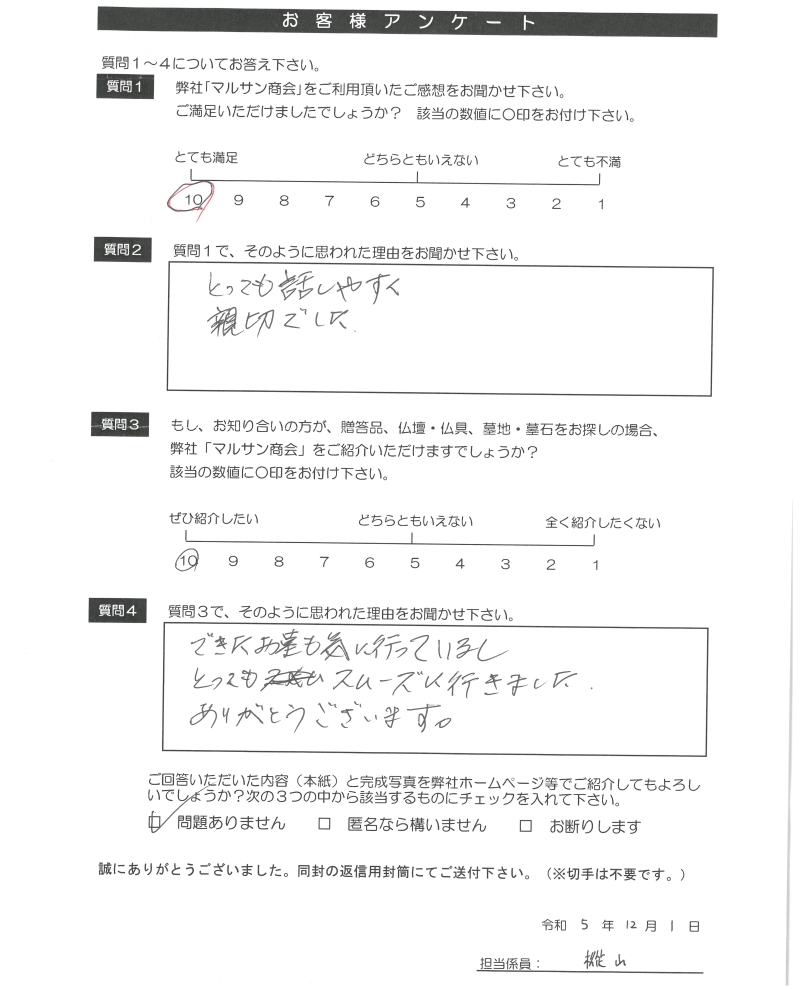 お客様アンケート
質問1～4についてお答え下さい。
質問1 弊社「マルサン商会」をご利用頂いたご感想をお聞かせ下さい。
ご満足いただけましたでしょうか？ 該当の数値に〇印をお付け下さい。
とても満足 どちらともいえない とても不満
10 9 8 7 6 5 4 3 2 1
質問2 質問1で、そのように思われた理由をお聞かせ下さい。
とっても話しやすく
親切でした.
質問3 もし、お知り合いの方が、贈答品、仏壇・仏具、墓地・墓石をお探しの場合、
弊社「マルサン商会」をご紹介いただけますでしょうか？
該当の数値に〇印をお付け下さい。
ぜひ紹介したい どちらともいえない 全く紹介したくない
10 9 8 7 6 5 4 3 2 1
質問4 質問3で、そのように思われた理由をお聞かせ下さい。
できたお墓も気に行っているし
とっても スムーズに行きました.
ありがとうございます。
ご回答いただいた内容（本紙）と完成写真を弊社ホームページ等でご紹介してもよろし
いでしょうか？次の3つの中から該当するものにチェックを入れて下さい。
☑ 問題ありません □ 匿名なら構いません □ お断りします
誠にありがとうございました。同封の返信用封筒にてご送付下さい。（※切手は不要です。）
令和 5 年 12 月 1 日
担当係員： 山